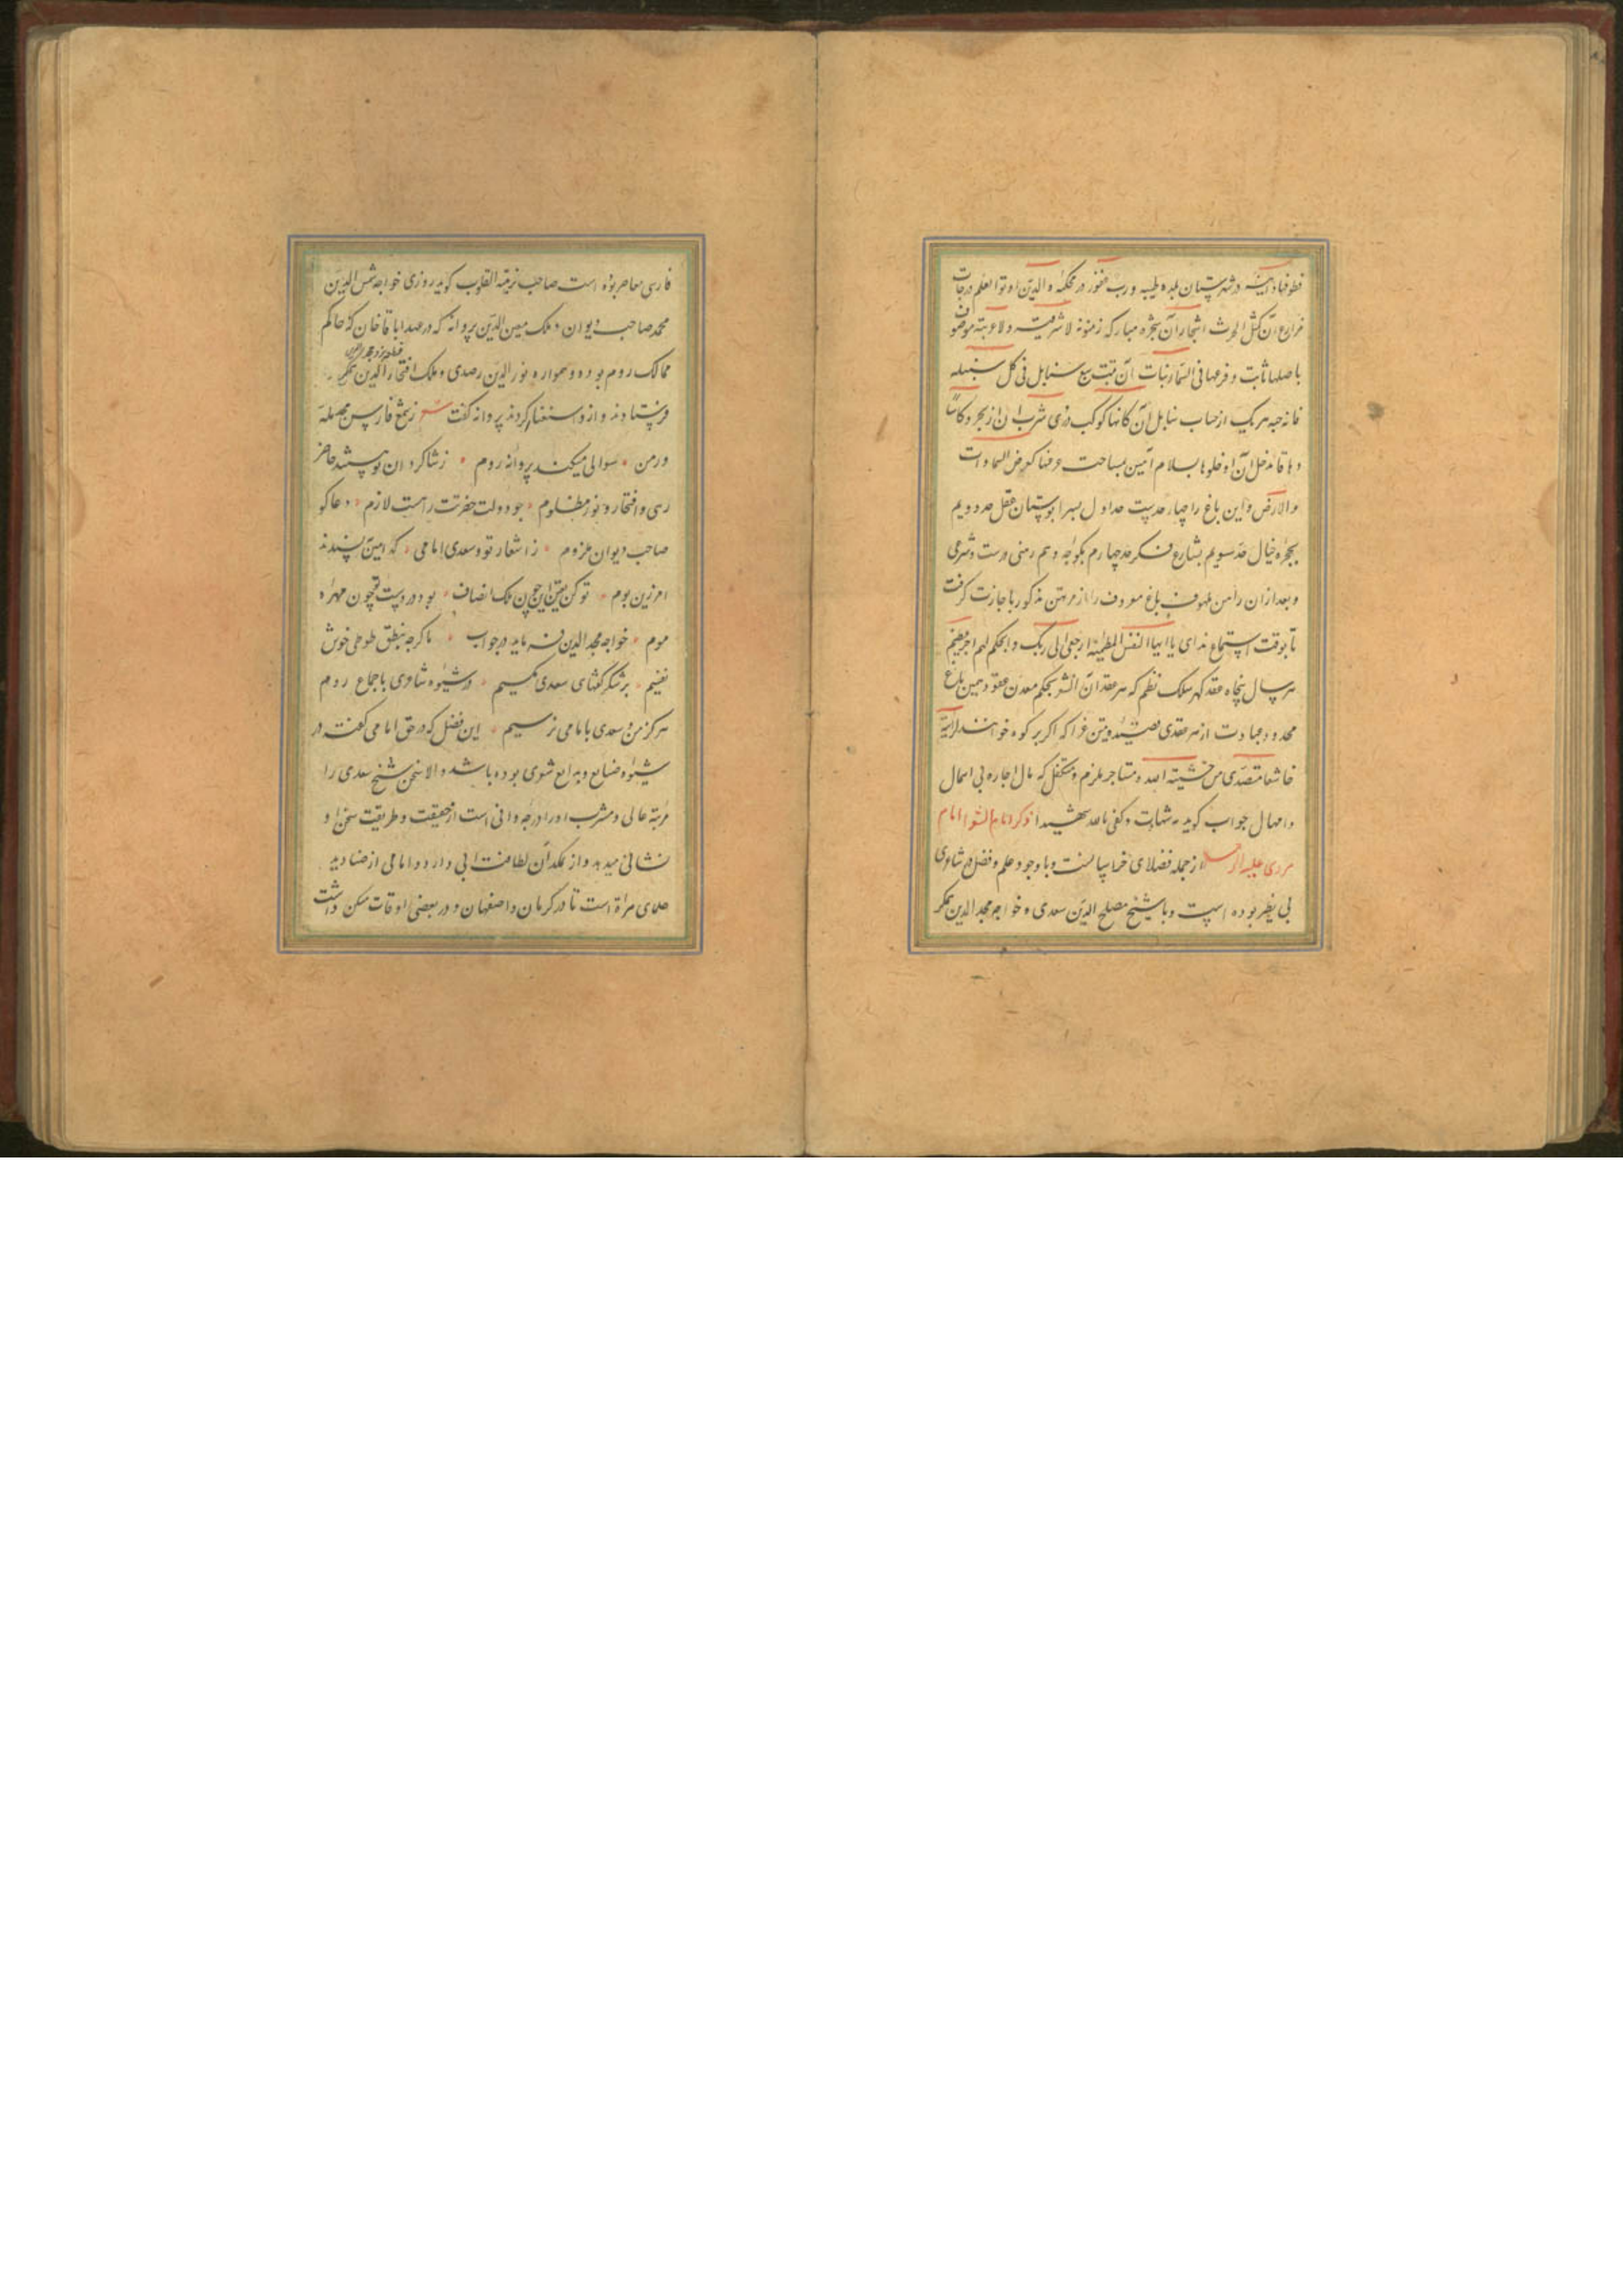 قطوفها دانیة در شهرستان بلدة طیبه و رب غفور در محکمهٔ والذین اوتوا العلم درجات
مزارع آن کمثل الحرث اشجار آن شجره مبارکه زیتونه لا شرقیه و لا غربیه موصوف
باصلها ثابت و فرعها فی السماء نبات آن تنبت سبع سنابل فی کل سنبله
مائه حبه هر یک از حساب سنابل آن کانها کوکب دری شرب آن از بحر و کاسا
دهاقا مدخل آن ادخلوها بسلام آمین مساحت عرضها کعرض السماوات
والارض و این باغ را چهار حدیست حد اول بسرابوستان عقل حد دویم
بحجره خیال حد سویم بشارع فکر حد چهارم بکوچه وهم رهنی درست و شرعی
و بعد از آن راهن ملهوف باغ معروف را از مرتهن مذکور باجازت گرفت
تا بوقت استماع ندای یا ایها النفس المطمئنة ارجعی الی ربک و بحکم لهم اجر عظیم
هر سال پنجاه عقد گهر سلک نظم که هر عقد آن الشعر بحکم معدن عقود همین باغ
محدود عبادت از هر عقدی قصیده متین غرا که اگر بر کوه خوانند لرایته
خاشعا متصدعا من خشیة الله و مستاجر ملزم و متکفل که مال اجاره بی اهمال
و امهال جواب گوید شهادت و کفی بالله شهیدا ذکر امام الشعرا امامی
هروی علیه الرحمه از جمله فضلای خراسانست و باوجود علم و فضل در شاعری
بی نظیر بوده است و با شیخ مصلح الدین سعدی و خواجه مجد الدین همکر
فارسی معاصر بوده است صاحب نزهة القلوب گوید روزی خواجه شمس الدین
محمد صاحب دیوان و ملک معین الدین پروانه که در عهد اباقا خان که حاکم
ممالک روم بوده و همواره نور الدین رصدی و ملک افتخار الدین
فرستادند و ازو استفسار کردند پروانه گفت شعر ز شمع فارس مجد ملة
و دین • سوالی میکند پروانه روم • ز شاگردان تو هستند حاضر
رهی و افتخار و نور مظلوم • چو دولت حضرتت راهست لازم • دعاگو
صاحب دیوان ملزوم • ز اشعار تو و سعدی امامی • کدامین پسندند
اندرین بوم • تو کن تعیین این چون ملک انصاف • بود در دست تو چون مهره
موم • خواجه مجد الدین فرماید در جواب • ما گرچه بنطق طوطی خوش
نفسیم • بر شکر گفتهای سعدی مگسیم • در شیوه شاعری باجماع امم
هرگز من و سعدی بامامی نرسیم • این فضل که در حق امامی گفت در
شیوه صنایع و بدایع شعری بوده باشد والا سخن شیخ سعدی را
مرتبه عالی و مشرب او را درجه وافی است از حقیقت و طریقت سخن او
نشانی میدهد و از نمکدان لطافت آبی دارد و امامی از صنادید
علمای هراة است تا در کرمان و اصفهان و در بعضی اوقات مسکن داشت